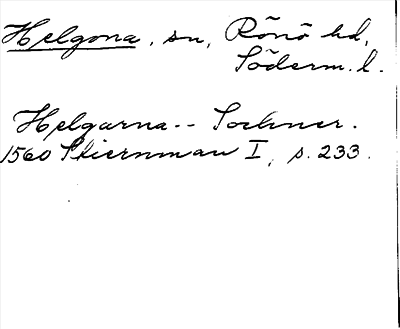 Helgona, sn, Rönö hd,
Söderm. l.
Helgarna -- Sochner.
1560 Stiernman I, s. 233.